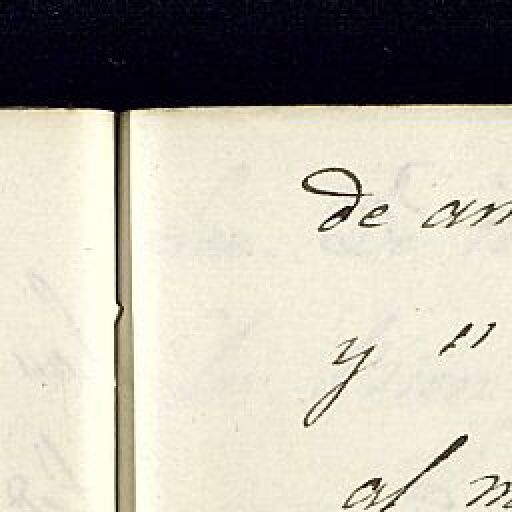 de am
y "
al m